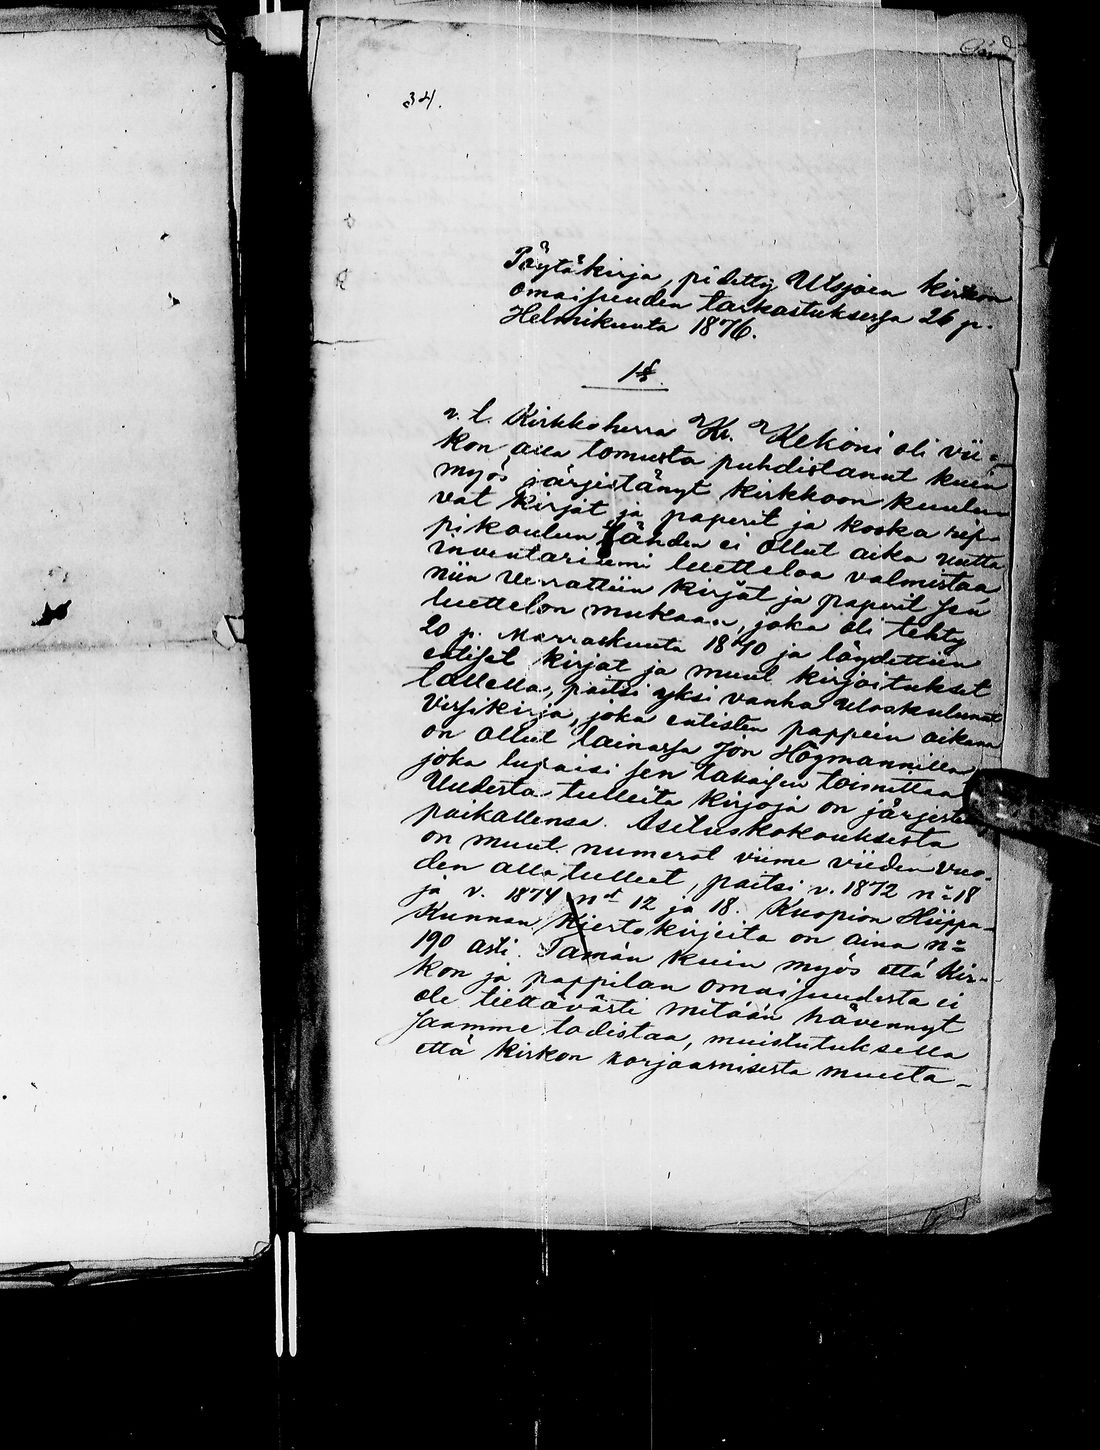 34.
Pöytäkirja, pidetty Utsjoen kirkon
omaisuuden tarkastuksessa 26 p.
Helmikuuta 1876.
1 §.
v. t. Kirkkoherra Kr. Kekoni oli vii-
kon alla tomusta puhdistanut kuin
myös järjestänyt kirkkoon kuulu-
vat kirjat ja paperit ja koska rip-
pikoulun tähden ei ollut aika uutta
inventariumi luetteloa valmistaa
niin verrattiin kirjat ja paperit sen
luettelon mukaan, joka oli tehty
20 p. Marraskuuta 1870 ja löydettiin
entiset kirjat ja muut kirjoitukset
tallella, paitsi yksi vanha uloskulunut
Virsikirja, joka entisten pappein aikana
on ollut lainassa Jon Högmannilla
joka lupaisi sen takaisin toimittaa
Uudesta tulleita kirjoja on järjestetty
paikallensa. Asetuskokouksesta
on muut numerot viime viiden vuo-
den alla tulleet, paitsi v. 1872 no 18
ja v. 1874 not 12 ja 18. Kuopion Hiippa-
Kunnan Kiertokirjeita on aina no
190 asti. Tämän kuin myös että Kir-
kon ja pappilan omaisuudesta ei
ole tiettävästi mitään hävennyt
saamme todistaa, muistutuksella
että kirkon korjaamisesta muuta-